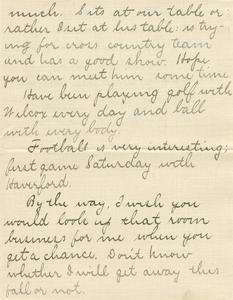 much. Sits at our table or
rather I sit at his table: is try-
ing for cross country team
and has a good show. Hope
you can meet him some time
Have been playing golf with
Wilcox every day and ball
with every body.
Football is very interesting;
first game Saturday with
Haverford.
By the way, I wish you
would look up that room
business for me when you
get a chance. Don't know
whether I will get away this
fall or not.